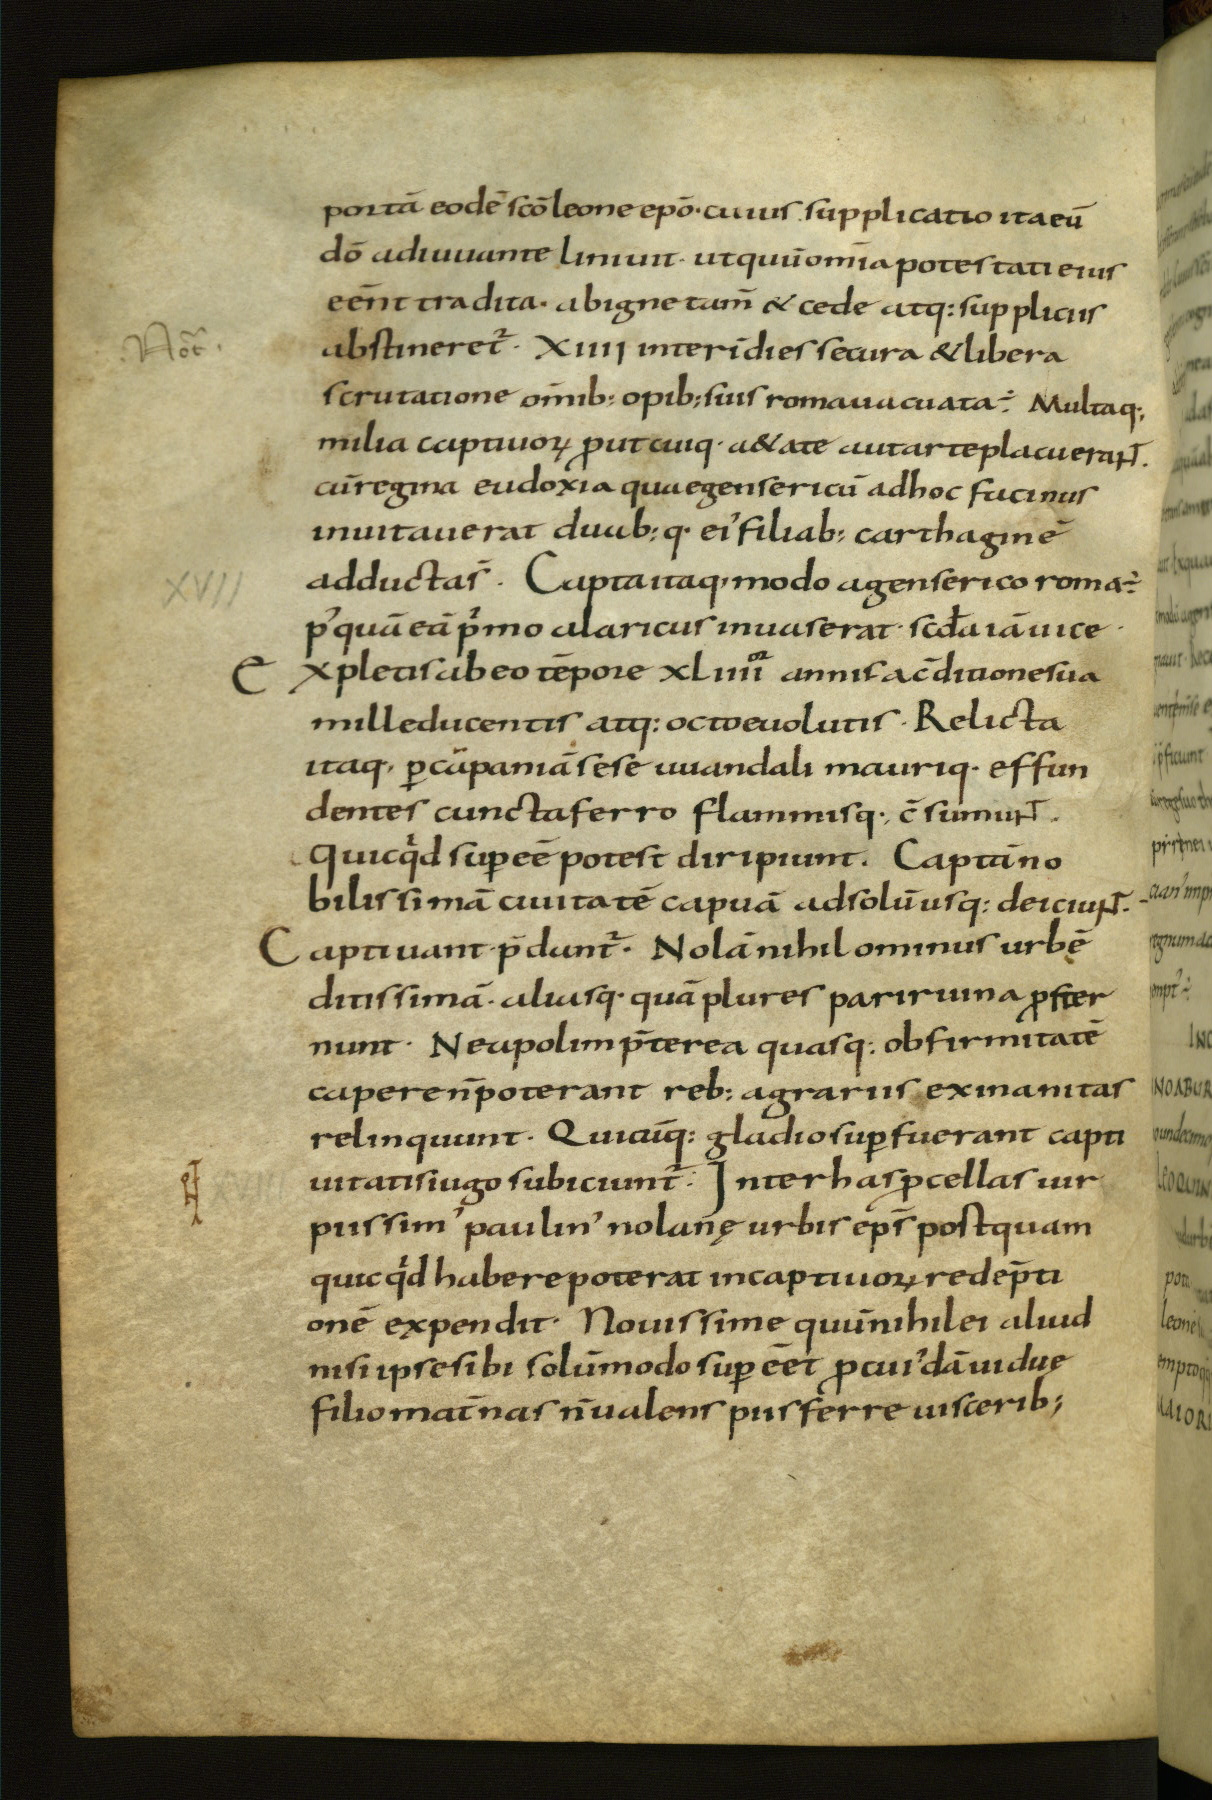 portā eodē scō leone epō· cuius supplicatio ita eū
dō adiuuante liniuit· ut quū om̄ia potestati eius
eēnt tradita· ab igne tam̄ & cede atq: suppliciis
.Nōt.
abstineret᷑· XIIII inter̄ dies secura & libera
scrutatione om̄ib: opib; suis roma uacuata ÷ Multaq;
milia captiuoꝝ ꝓut cuiq· a&ate aut arte placuerant̄.
cū regina eudoxia quae gensericū ad hoc facinus
inuitauerat duab; q· ei᾿ filiab; carthaginē
XVII
adductas̄. Capta itaq; modo a genserico roma ÷
p᾿quā eā p͛mo alaricus inuaserat· scd̄a iā uice·
Expletis ab eo tēpore XLIIIIor annis a c̄ditione sua
mille ducentis atq: octo euolutis· Relicta
itaq· ꝑ cāpaniā sese uuandali mauriq· effun
dentes cuncta ferro flammisq·; c̄sumunt̄.
Quicq͛d supeē potest diripiunt. Captā no
bilissimā ciuitatē capuā ad solū usq: deiciunt̄.
Captiuant· p̄dant᷑· Nolā nihilominus urbē
ditissimā· aliasq· quā plures pari ruina ꝓster
nunt· Neapolim p̄terea quasq: ob firmitatē
capere n̄ poterant reb: agrariis exinanitas
relinquunt· Quicūq: gladio suꝑfuerant capti
XVIII
uitatis iugo subiciunt᷑· Inter has ꝓcellas uir
piissim᾿ paulin᾿ nolanę urbis ep̄s postquam
quicq͛d habere poterat in captiuoꝝ redēpti
onē expendit· Nouissime quū nihil ei aliud
nisi ipse sibi solūmodo suꝑ eēt ꝓ cui᾿dā uiduę
filio mat̄nas n̄ ualens pius ferre uiscerib;